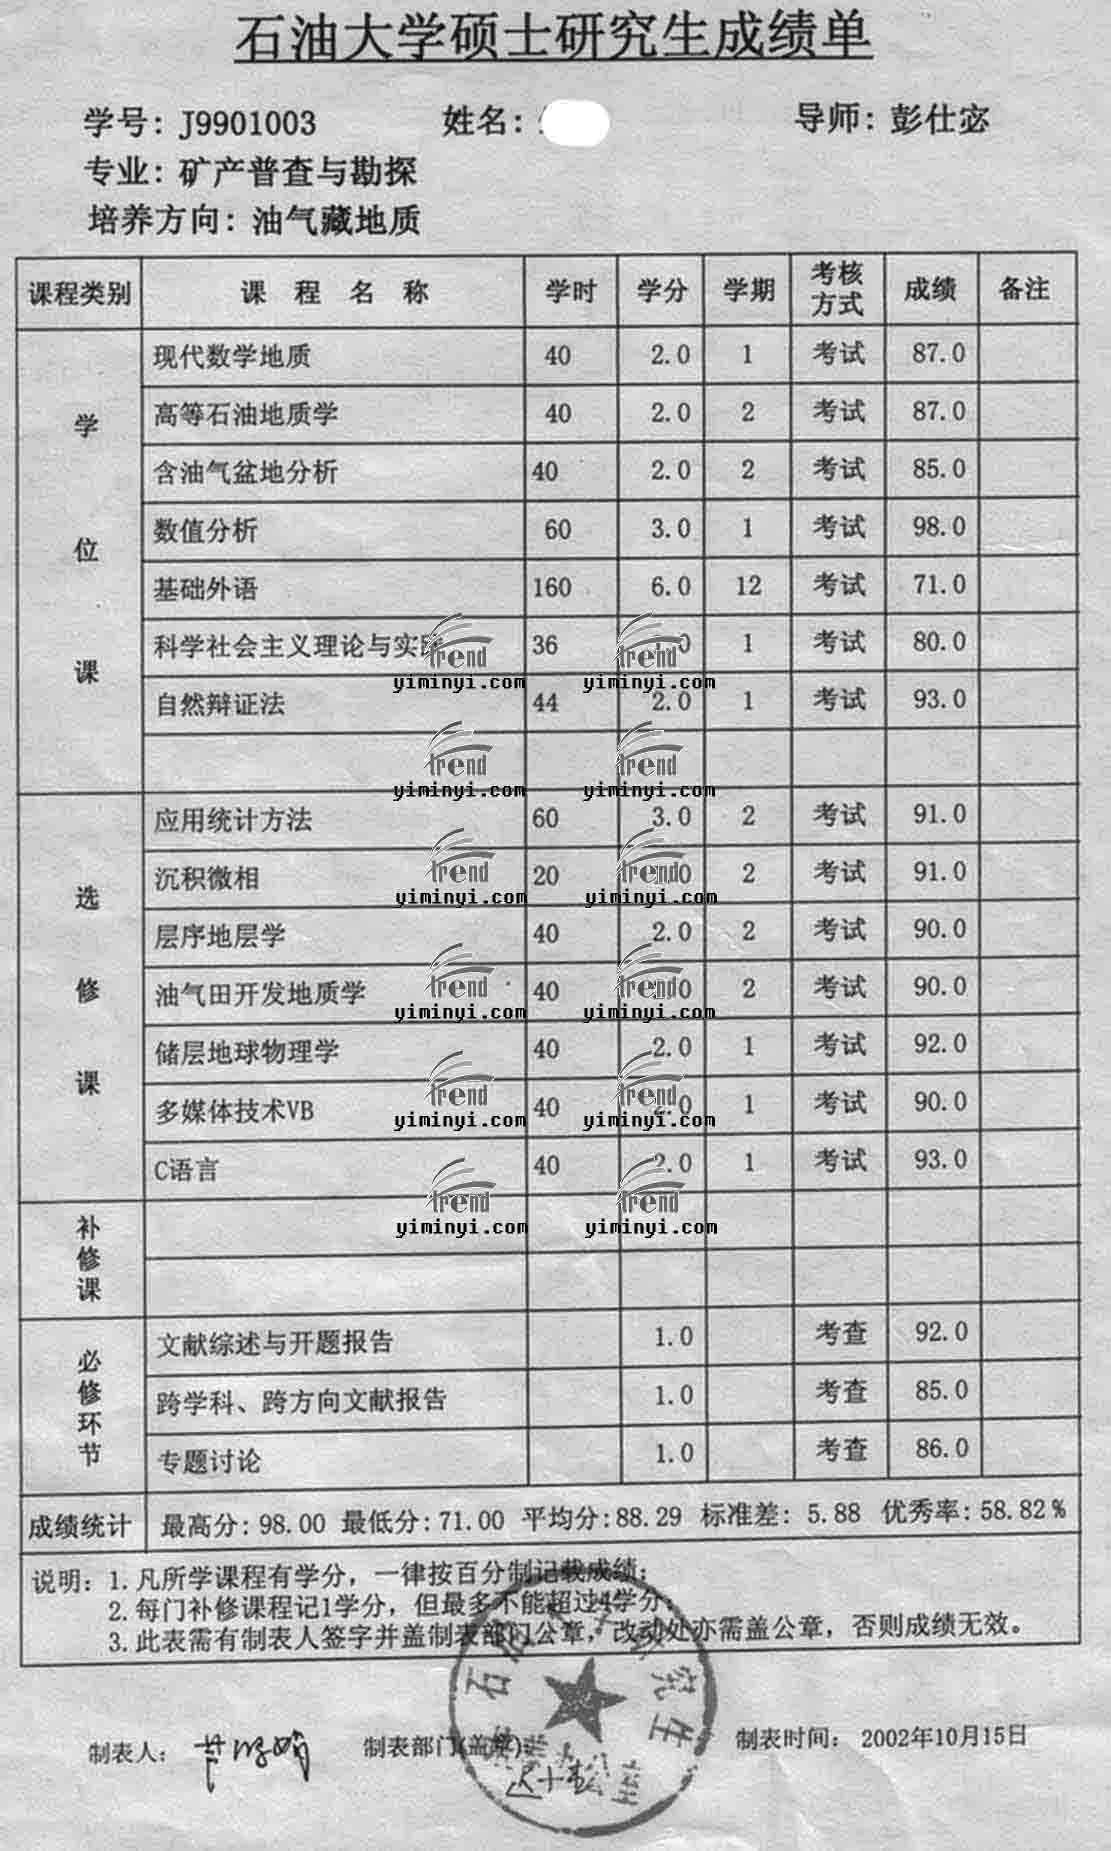 石油大学硕士研究生成绩单
学号: J9901003 姓名: 导师: 彭仕宓
专业: 矿产普查与勘探
培养方向: 油气藏地质
课程类别 课 程 名 称 学时 学分 学期 考核方式 成绩 备注
学位课
现代数学地质 40 2.0 1 考试 87.0
高等石油地质学 40 2.0 2 考试 87.0
含油气盆地分析 40 2.0 2 考试 85.0
数值分析 60 3.0 1 考试 98.0
基础外语 160 6.0 12 考试 71.0
科学社会主义理论与实践 36 1 考试 80.0
自然辩证法 44 2.0 1 考试 93.0
选修课
应用统计方法 60 3.0 2 考试 91.0
沉积微相 20 2 考试 91.0
层序地层学 40 2.0 2 考试 90.0
油气田开发地质学 40 2 考试 90.0
储层地球物理学 40 2.0 1 考试 92.0
多媒体技术VB 40 2.0 1 考试 90.0
C语言 40 2.0 1 考试 93.0
补修课
必修环节
文献综述与开题报告 1.0 考查 92.0
跨学科、跨方向文献报告 1.0 考查 85.0
专题讨论 1.0 考查 86.0
成绩统计 最高分: 98.00 最低分: 71.00 平均分: 88.29 标准差: 5.88 优秀率: 58.82%
说明: 1. 凡所学课程有学分，一律按百分制记载成绩;
2. 每门补修课程记1学分，但最多不能超过4学分;
3. 此表需有制表人签字并盖制表部门公章，改动处亦需盖公章，否则成绩无效。
制表人: 制表部门(盖章): 制表时间: 2002年10月15日
trend
yiminyi.com
trend
yiminyi.com
trend
yiminyi.com
trend
yiminyi.com
trend
yiminyi.com
trend
yiminyi.com
trend
yiminyi.com
trend
yiminyi.com
trend
yiminyi.com
trend
yiminyi.com
trend
yiminyi.com
trend
yiminyi.com